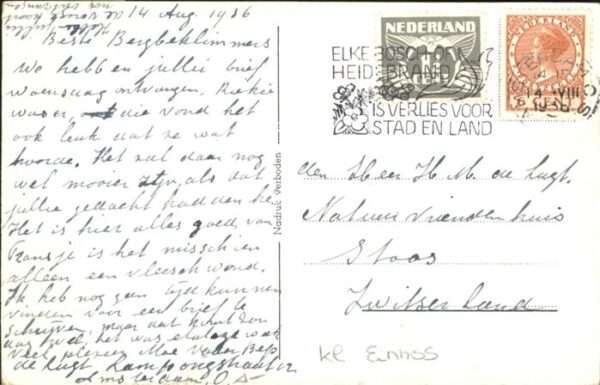 14 Aug. 1936
Beste Bergbeklimmers
We hebben jullie brief
woensdag ontvangen. Riekie
was er, die vond het
ook leuk dat ze wat
hoorde. Het zal daar nog
wel mooier zijn, als dat
jullie gedacht hadden he
Het is hier alles goed, van
Fransje is het misschien
alleen een vleeschwond.
Ik heb nog geen tijd kunnen
vinden voor een brief te
schrijven, maar dat komt
het was
Veel plezier Moe Vader Bep
de Lugt
Amsterdam. O
Nadruk Verboden
NEDERLAND
NEDERLAND
ELKE BOSCH OF
HEIDEBRAND
IS VERLIES VOOR
STAD EN LAND
14 VIII
1936
den Heer H. M. de Lugt.
Natuur Vriendenhuis
Stoos
Zwitserland